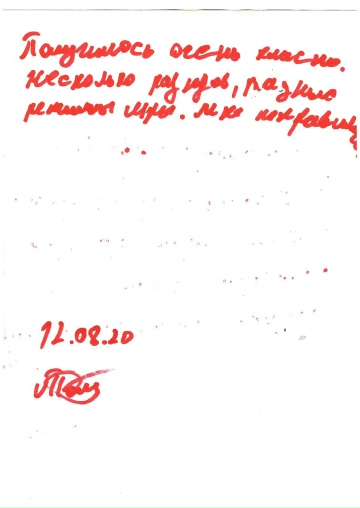 Получилось очень классно.
Несколько раундов, разные
режимы игры. Мне понравилось
12.08.20